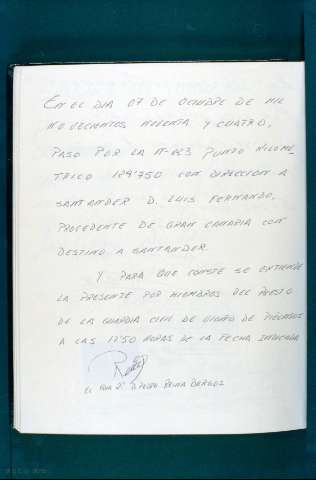 EN EL DIA 07 DE OCTUBRE DE MIL
NOVECIENTOS NOVENTA Y CUATRO,
PASO POR LA N-623 PUNTO KILOME-
TRICO 129'750 CON DIRECCION A
SANTANDER D. LUIS FERNANDO,
PROCEDENTE DE GRAN CANARIA CON
DESTINO A SANTANDER.
Y PARA QUE CONSTE SE EXTIENDE
LA PRESENTE POR MIEMBROS DEL PUESTO
DE LA GUARDIA CIVIL DE DE
A LAS 1750 HORAS DE LA FECHA INDICADA
EL D. PEDRO REINA